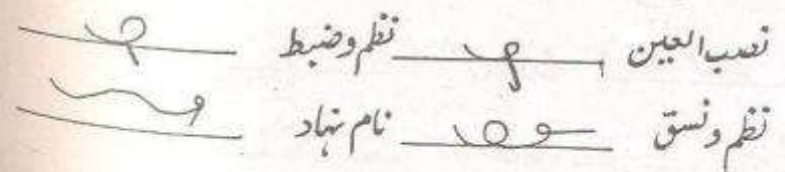 نصب العین نظم و ضبط
نظم و نسق نام نہاد